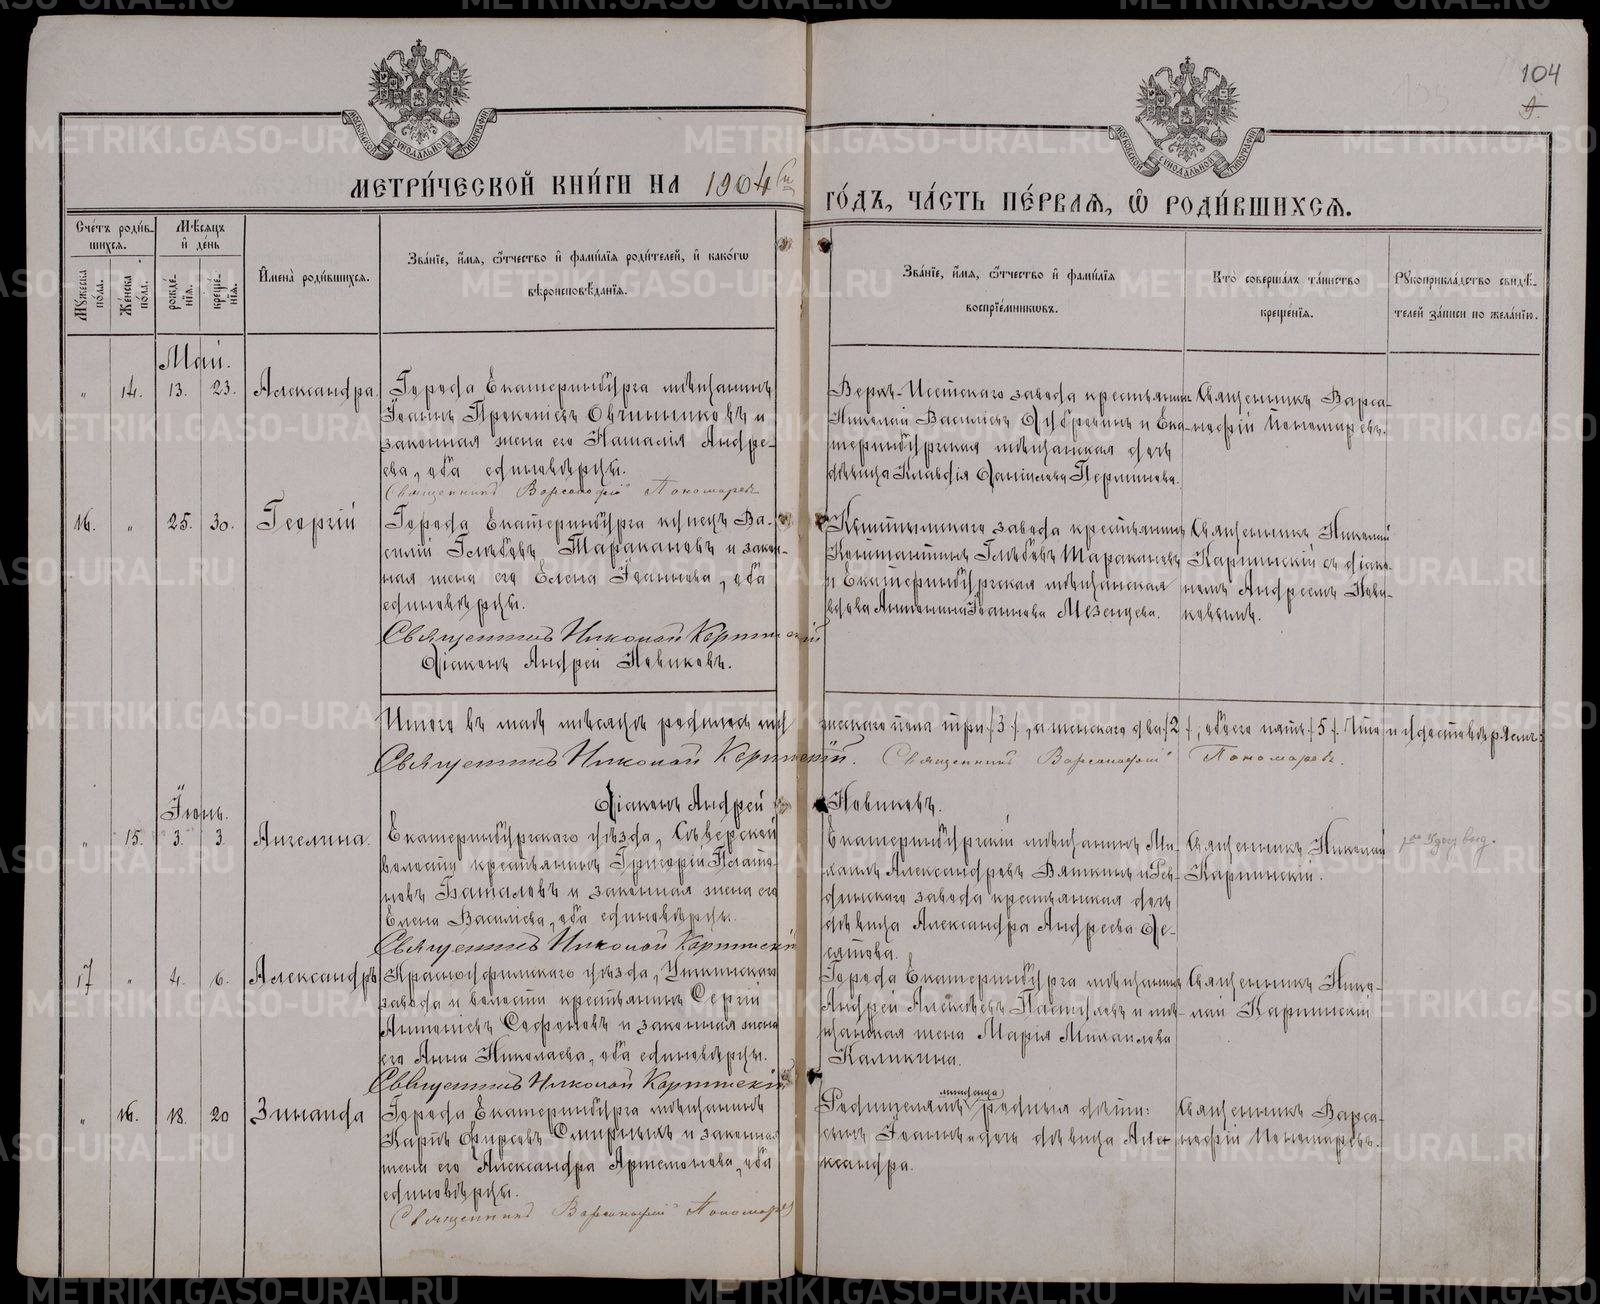 104
9.
МЕТРИ́ЧЕСКОЙ КНИ́ГИ НА 1904й ГО́ДЪ, ЧА́СТЬ ПЕ́РВАѦ, Ѿ РОДИ́ВШИХСѦ.
Сче́тъ роди́в-
шихсѧ.
Мꙋжеска по́ла.
Же́нска по́ла.
Мѣ́сѧцъ
и҆ де́нь
рожде́-
нїѧ.
креще́-
нїѧ.
И҆мена̀ роди́вшихсѧ.
Зва́нїе, и҆́мѧ, ѻ҆́тчество и҆ фами́лїѧ роди́телей, и҆ како́гѡ
вѣроисповѣ́данїѧ.
Зва́нїе, и҆́мѧ, ѻ҆́тчество и҆ фами́лїѧ
воспрїе́мникѡвъ.
Кто̀ соверша́лъ та́инство
креще́нїѧ.
Рꙋкоприкла́дство свидѣ́-
телей за́писи по жела́нїю.
Май.
„ 14. 13. 23. Александра.
Города Екатеринбурга мѣщанинъ
Іоаннъ Прокопіевъ Овчинниковъ и
законная жена его Наталія Андре-
ева, оба единовѣрцы.
Священникъ Варсонофій Пономаревъ
Верхъ-Исетскаго завода крестьянинъ
Николай Василіевъ Дубровинъ и Ека-
теринбургская мѣщанская дочь
дѣвица Клавдія Даніилова Перминова.
Священникъ Варса-
нофій Пономаревъ.
16. „ 25. 30. Георгій
Города Екатеринбурга купецъ Ва-
силій Глѣбовъ Таракановъ и закон-
ная жена его Елена Іоаннова, оба
единовѣрцы.
Священникъ Николай Карпинскій
Діаконъ Андрей Новиковъ.
завода крестьянинъ
Константинъ Глѣбовъ Таракановъ
и Екатеринбургская мѣщанская
вдова Антонина Іоаннова Мезенцева.
Священникъ Николай
Карпинскій съ діако-
номъ Андреемъ Нови-
ковымъ.
Итого въ маѣ мѣсяцѣ родилось мужескаго пола три /3/, а женскаго два /2/, обоего пять /5/.
Священникъ Николай Карпинскій. Священникъ Варсонофій Пономаревъ.
Діаконъ Андрей Новиковъ.
Іюнь.
„ 15. 3. 3. Ангелина.
Екатеринбургскаго уѣзда, Сѣверской
волости крестьянинъ Григорій Плато-
новъ Баталовъ и законная жена его
Елена Василіева, оба единовѣрцы.
Священникъ Николай Карпинскій
Екатеринбургскій мѣщанинъ Ми-
хаилъ Александровъ Вяткинъ и Рев-
динскаго завода крестьянская дочь
дѣвица Александра Андреева Де-
сятова.
Священникъ Николай
Карпинскій.
17 „ 4. 6. Александръ
Красноуфимскаго уѣзда, Уткинскаго
завода и волости крестьянинъ Сергій
Антоніевъ Софоновъ и законная жена
его Анна Николаева, оба единовѣрцы.
Священникъ Николай Карпинскій
Города Екатеринбурга мѣщанинъ
Андрей Алексѣевъ Пастуховъ и мѣ-
щанская жена Марія Михаилова
Каликина.
Священникъ Нико-
лай Карпинскій
„ 16. 18. 20 Зинаида
Города Екатеринбурга мѣщанинъ
Карпъ Фирсовъ Смирныхъ и законная
жена его Александра Артемонова, оба
единовѣрцы.
Священникъ Варсонофій Пономаревъ
Родителямъ родныя дѣти:
сынъ Іоаннъ и дочь дѣвица Але-
ксандра.
Священникъ Варса-
нофій Пономаревъ.
METRIKI.GASO-URAL.RU